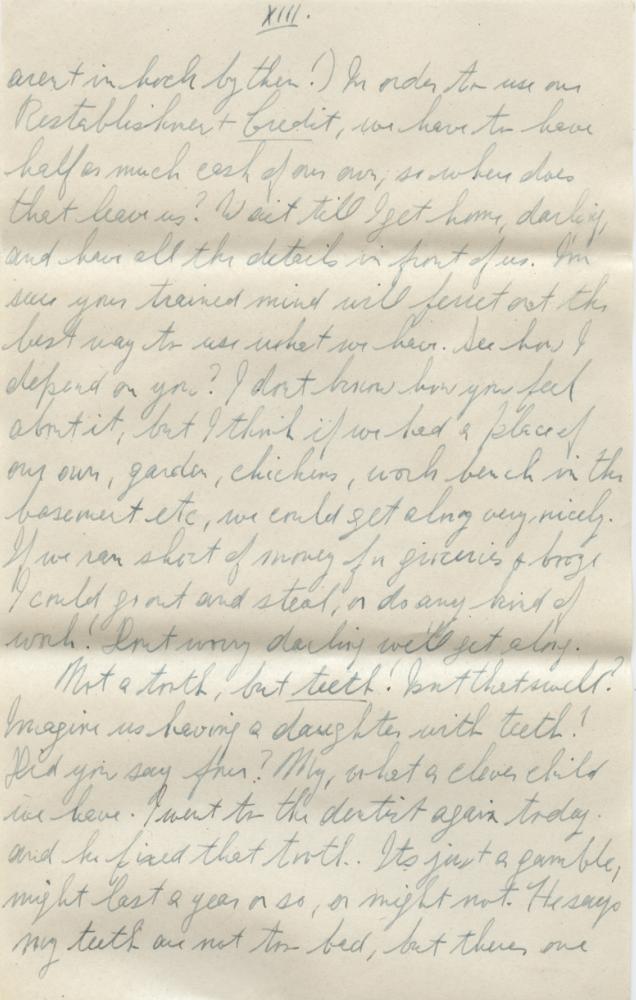 XIII.
aren't in hock by then!) In order to use our
Restablishment Credit, we have to have
half as much cash of our own, so where does
that leave us? Wait till I get home, darling,
and have all the details in front of us. I'm
sure your trained mind will ferret out the
best way to use what we have. See how I
depend on you? I don't know how you feel
about it, but I think if we had a place of
our own, garden, chickens, work bench in the
basement etc, we could get along very nicely.
If we ran short of money for groceries & booze
I could go out and steal, or do any kind of
work! Dont worry darling we'll get along.
Not a tooth, but teeth! Isn't that swell?
Imagine us having a daughter with teeth!
Did you say four? My, what a clever child
we have. I went to the dentist again today.
and he fixed that tooth. Its just a gamble,
might last a year or so, or might not. He says
my teeth are not too bad, but theres one